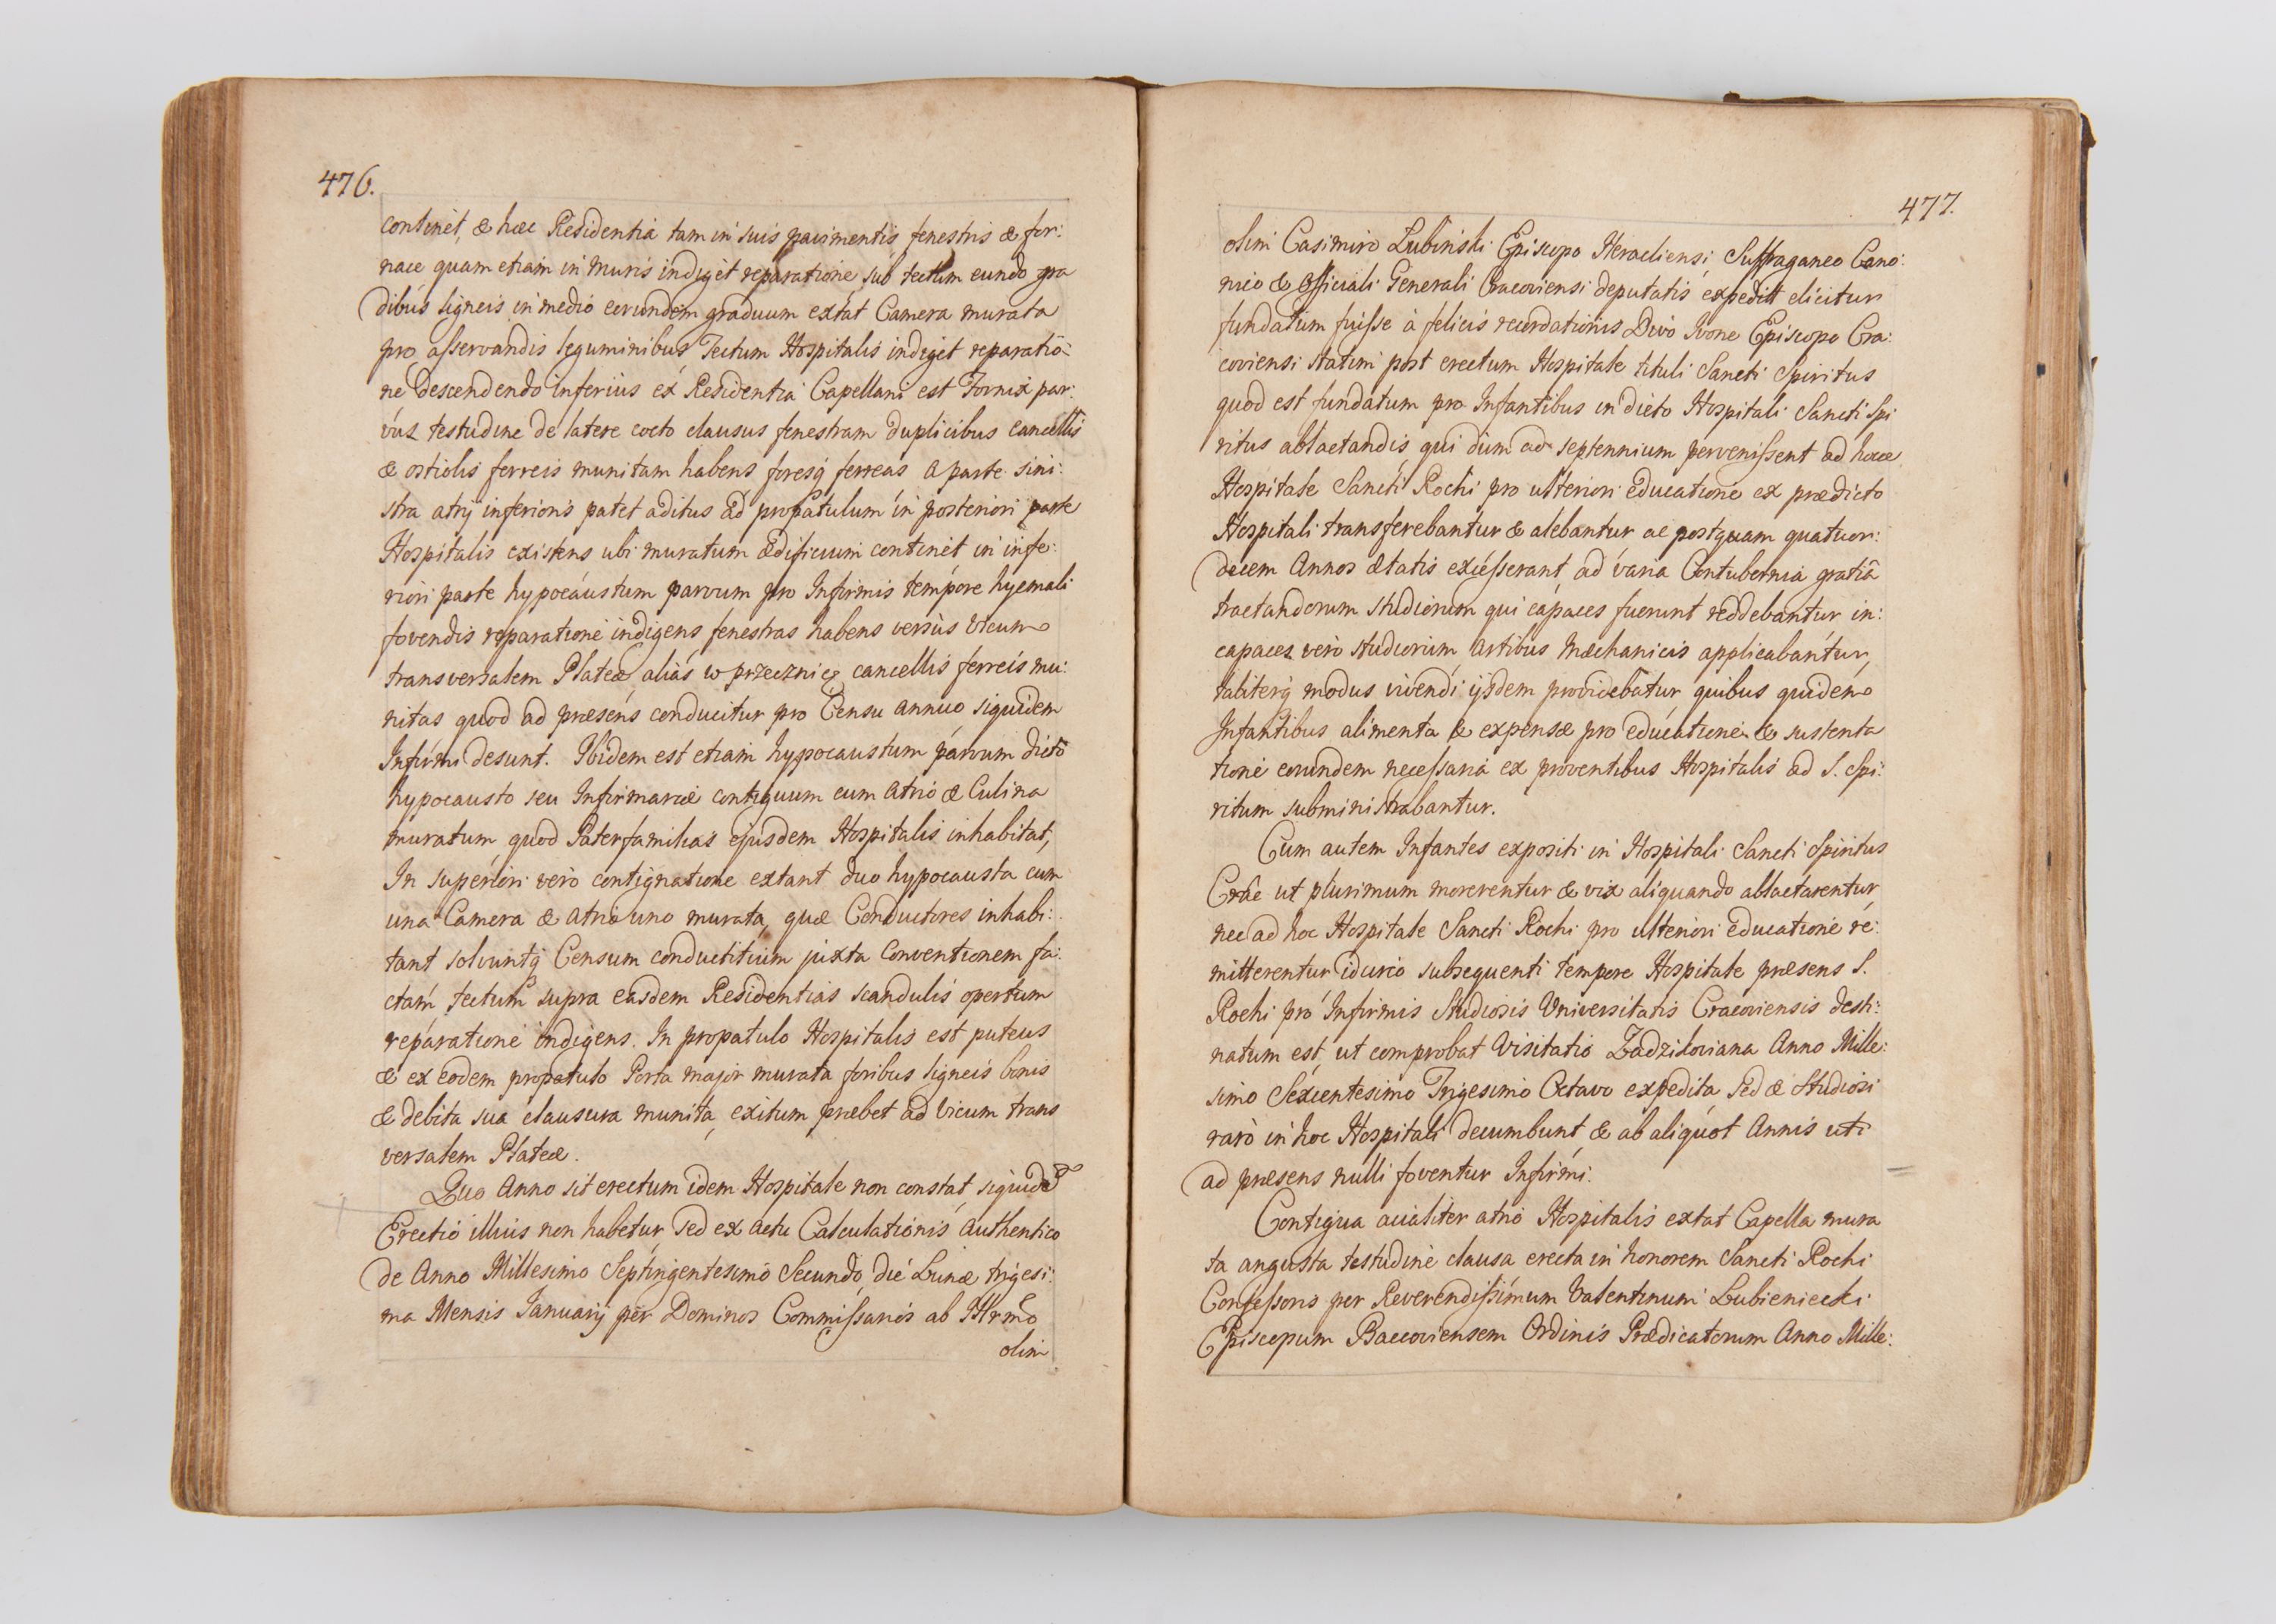 476.
continet, & hæc Residentia tam in suis pavimentis fenestris & for:
nace quam etiam in muris indiget reparatione sub tectum eundo gra
dibus ligneis in medio eorundem graduum extat Camera murata
pro asservandis leguminibus Tectum Hospitalis indiget reparatio:
ne Descendendo inferius ex Residentia Capellani est Fornix par:
vus testudine de latere cocto clausus fenestram duplicibus cancellis
& ostiolis ferreis munitam habens foresq ferreas a parte sini:
stra atrij inferioris patet aditus ad propatulum in posteriori parte
Hospitalis existens ubi muratum ædificium continet in infe:
riori parte hypocaustum parvum pro Infirmis tempore hyemali
fovendis reparatione indigens fenestras habens versus Vicum
transversalem Plateæ alias w przecznicę cancellis ferreis mu:
nitas quod ad præsens conducitur pro Censu annuo siquidem
Infirmi desunt. Ibidem est etiam hypocaustum parvum dicto
hypocausto seu Infirmariæ contiguum cum Atrio & Culina
muratum quod Paterfamilias ejusdem Hospitalis inhabitat,
In superiori vero contignatione extant duo hypocausta cum
una Camera & atrio uno murata, quæ Conductores inhabi:
tant solvuntq Censum conductitium juxta Conventionem fa:
ctam tectum supra easdem Residentias scandulis opertum
reparatione indigens. In propatulo Hospitalis est puteus
& ex eodem propatulo Porta major murata foribus ligneis bonis
& debita sua clausura munita, exitum præbet ad Vicum trans
versalem Plateæ.
Quo Anno sit erectum idem Hospitale non constat, siquidē
Erectio illius non habetur sed ex actu Calculationis Authentico
de Anno Millesimo Septingentesimo Secundo, die Lunæ trigesi:
ma Mensis Januarij per Dominos Commissarios ab Illrmo
olim
477.
olim Casimiro Lubinski Episcopo Heracliensi, Suffraganeo Cano:
nico & Officiali Generali Cracoviensi deputatis expedit elicitur
fundatum fuisse à felicis recordationis Divo Ivone Episcopo Cra:
coviensi statim post erectum Hospitale tituli Sancti Spiritus
quod est fundatum pro Infantibus in dicto Hospitali Sancti Spi
ritus ablactandis, qui dum ad septennium pervenissent ad hocce
Hospitale Sancti Rochi pro ulteriori educatione ex prædicto
Hospitali transferebantur & alebantur ac postquam quatuor:
decem Annos ætatis excesserant, ad varia Contubernia gratiā
tractandorum studiorum qui capaces fuerunt reddebantur in:
capaces vero studiorum, Artibus Mæchanicis applicabantur,
taliterq modus vivendi ijsdem providebatur quibus quidem
Infantibus alimenta & expensæ pro educatione & sustenta
tione eorundem necessaria ex proventibus Hospitalis ad S. Spi:
ritum subministrabantur.
Cum autem Infantes expositi in Hospitali Sancti Spiritus
Crāe ut plurimum morerentur & vix aliquando ablactarentur
nec ad hoc Hospitale Sancti Rochi pro ulteriori educatione re:
mitterentur idcirco subsequenti tempore Hospitale præsens S.
Rochi pro Infirmis Studiosis Universitatis Cracoviensis desti:
natum est, ut comprobat Visitatio Zadzikoviana Anno Mille:
simo Sexcentesimo Trigesimo Octavo expedita sed & Studiosi
raro in hoc Hospitali decumbunt, & ab aliquot Annis uti
ad præsens nulli foventur Infirmi.
Contigua aualiter atrio Hospitalis extat Capella mura
ta angusta testudine clausa erecta in honorem Sancti Rochi
Confessoris per Reverendissimum Valentinum Lubieniecki
Episcopum Baccoviensem Ordinis Prædicatorum Anno Mille: